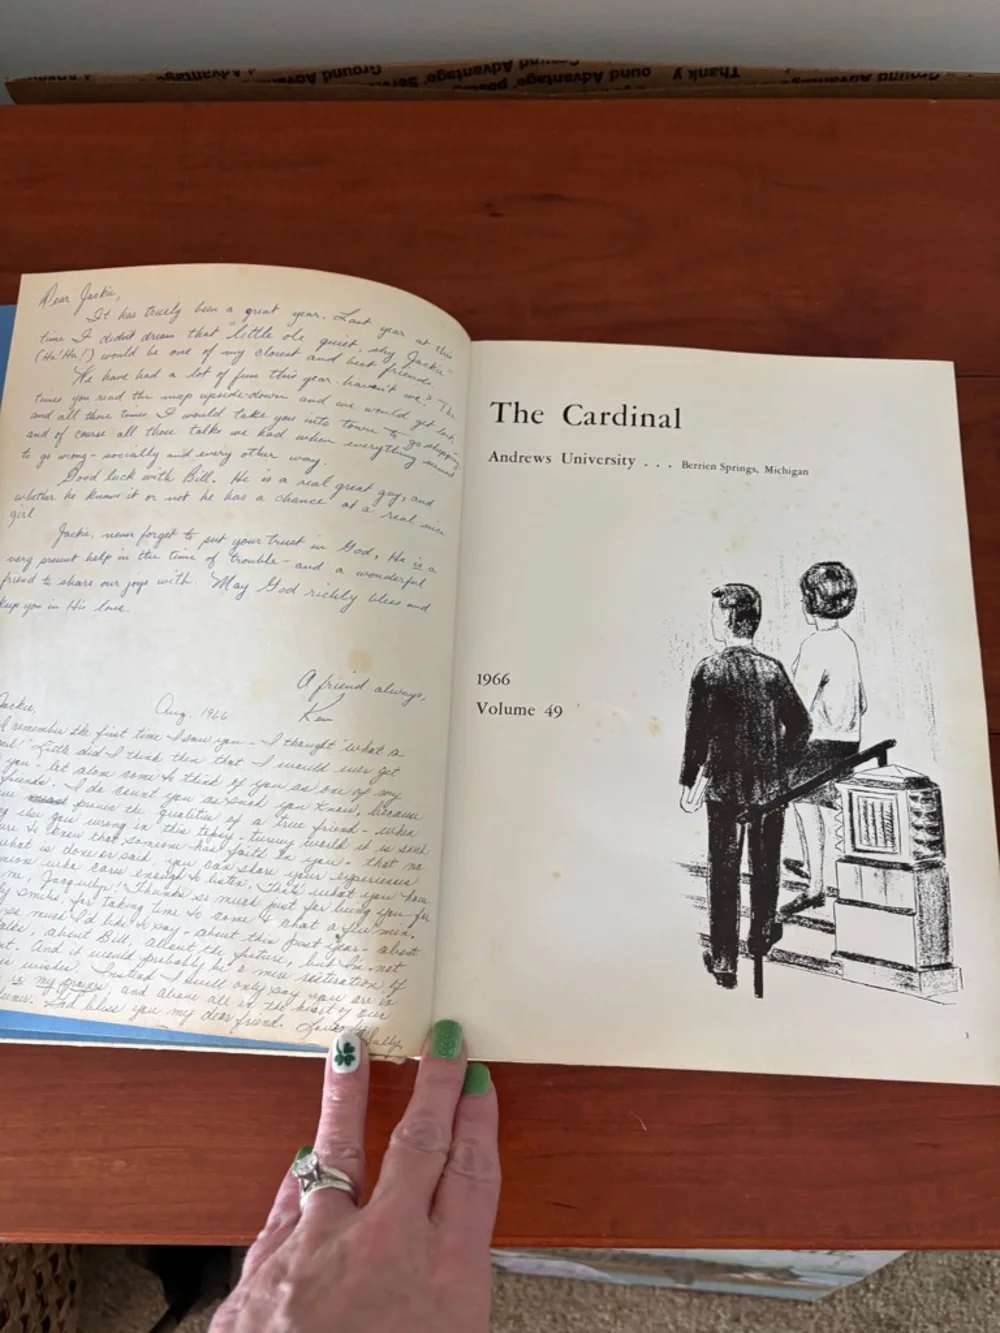 Dear Jackie,
It has truely been a great year. Last year at this
time I didn't dream that "little ole quiet, shy, Jackie-
(Ha! Ha!) would be one of my closest and best friends.
We have had a lot of fun this year haven't we? The
times you read the map upside-down and we would get lost,
and all those times I would take you into town to go shopping,
and of course all those talks we had when everything seemed
to go wrong - socially and every other way.
Good luck with Bill. He is a real great guy, and
whether he knows it or not he has a chance at a real nice
girl.
Jackie, never forget to put your trust in God, He is a
very present help in the time of trouble - and a wonderful
friend to share our joys with. May God richly bless and
keep you in His love.
A friend always,
Ken
Aug. 1966
Jackie,
I remember the first time I saw you - I thought "what a
Little did I think then that I would ever get
you - let alone come to think of you as one of my
friends. I do count you as such you know, because
proven the qualities of a true friend - when
else goes wrong in this topsy, turvey world it is such
to know that someone has faith in you - that no
what is done or said, you can share your experiences
who care enough to listen. That's what you have
me, Jacquelyn! Thanks so much just for being you - for
smiles, for taking time to come & chat a few min.
so much I'd like to say - about this past year - about
talks, about Bill, about the future, but I'm not
And it would probably be a mere reiteration of
wishes. Instead I will only say you are in
in my prayers, and above all in the heart of our
God bless you my dear friend. Lovingly
Sally
The Cardinal
Andrews University . . . Berrien Springs, Michigan
1966
Volume 49
1
Ground Advantage
Thank y